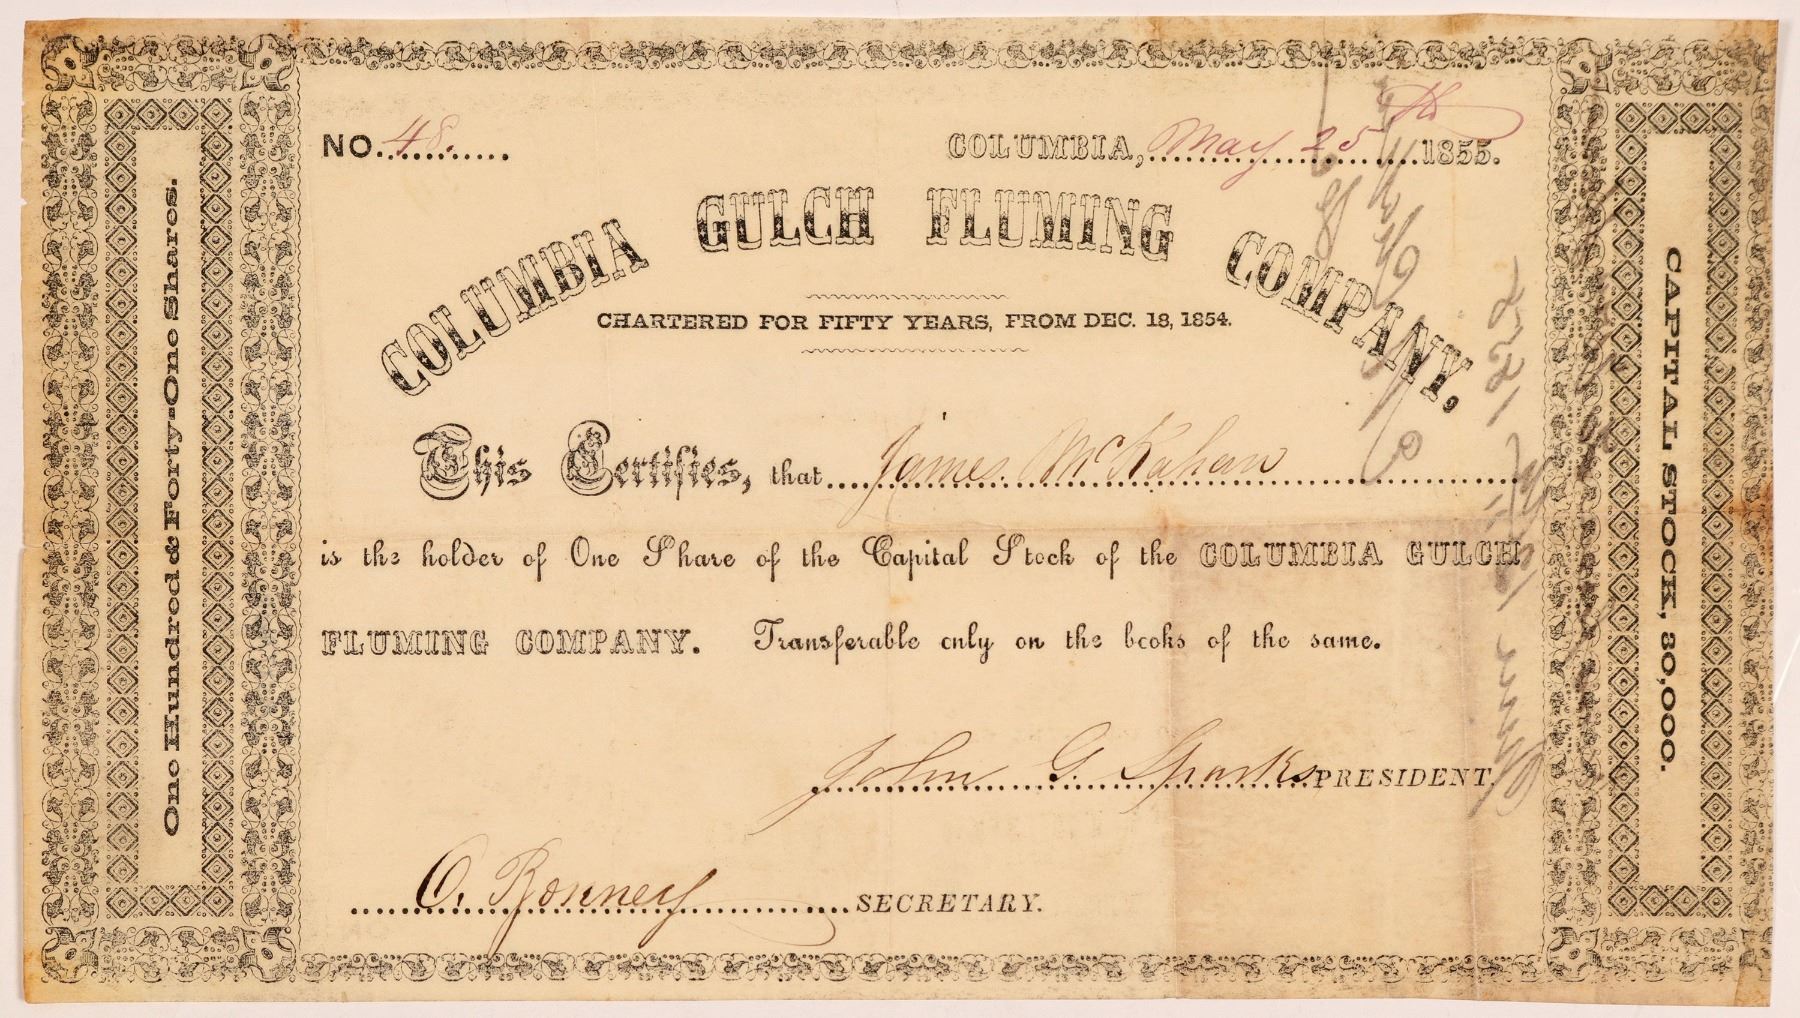 NO. 48.
COLUMBIA, May 25th 1855.
COLUMBIA GULCH FLUMING COMPANY.
CHARTERED FOR FIFTY YEARS, FROM DEC. 18, 1854.
This Certifies, that James McKahan
is the holder of One Share of the Capital Stock of the COLUMBIA GULCH
FLUMING COMPANY. Transferable only on the books of the same.
John G. Sparks PRESIDENT.
O. Bonney SECRETARY.
One Hundred & Forty-One Shares.
CAPITAL STOCK, 80,000.